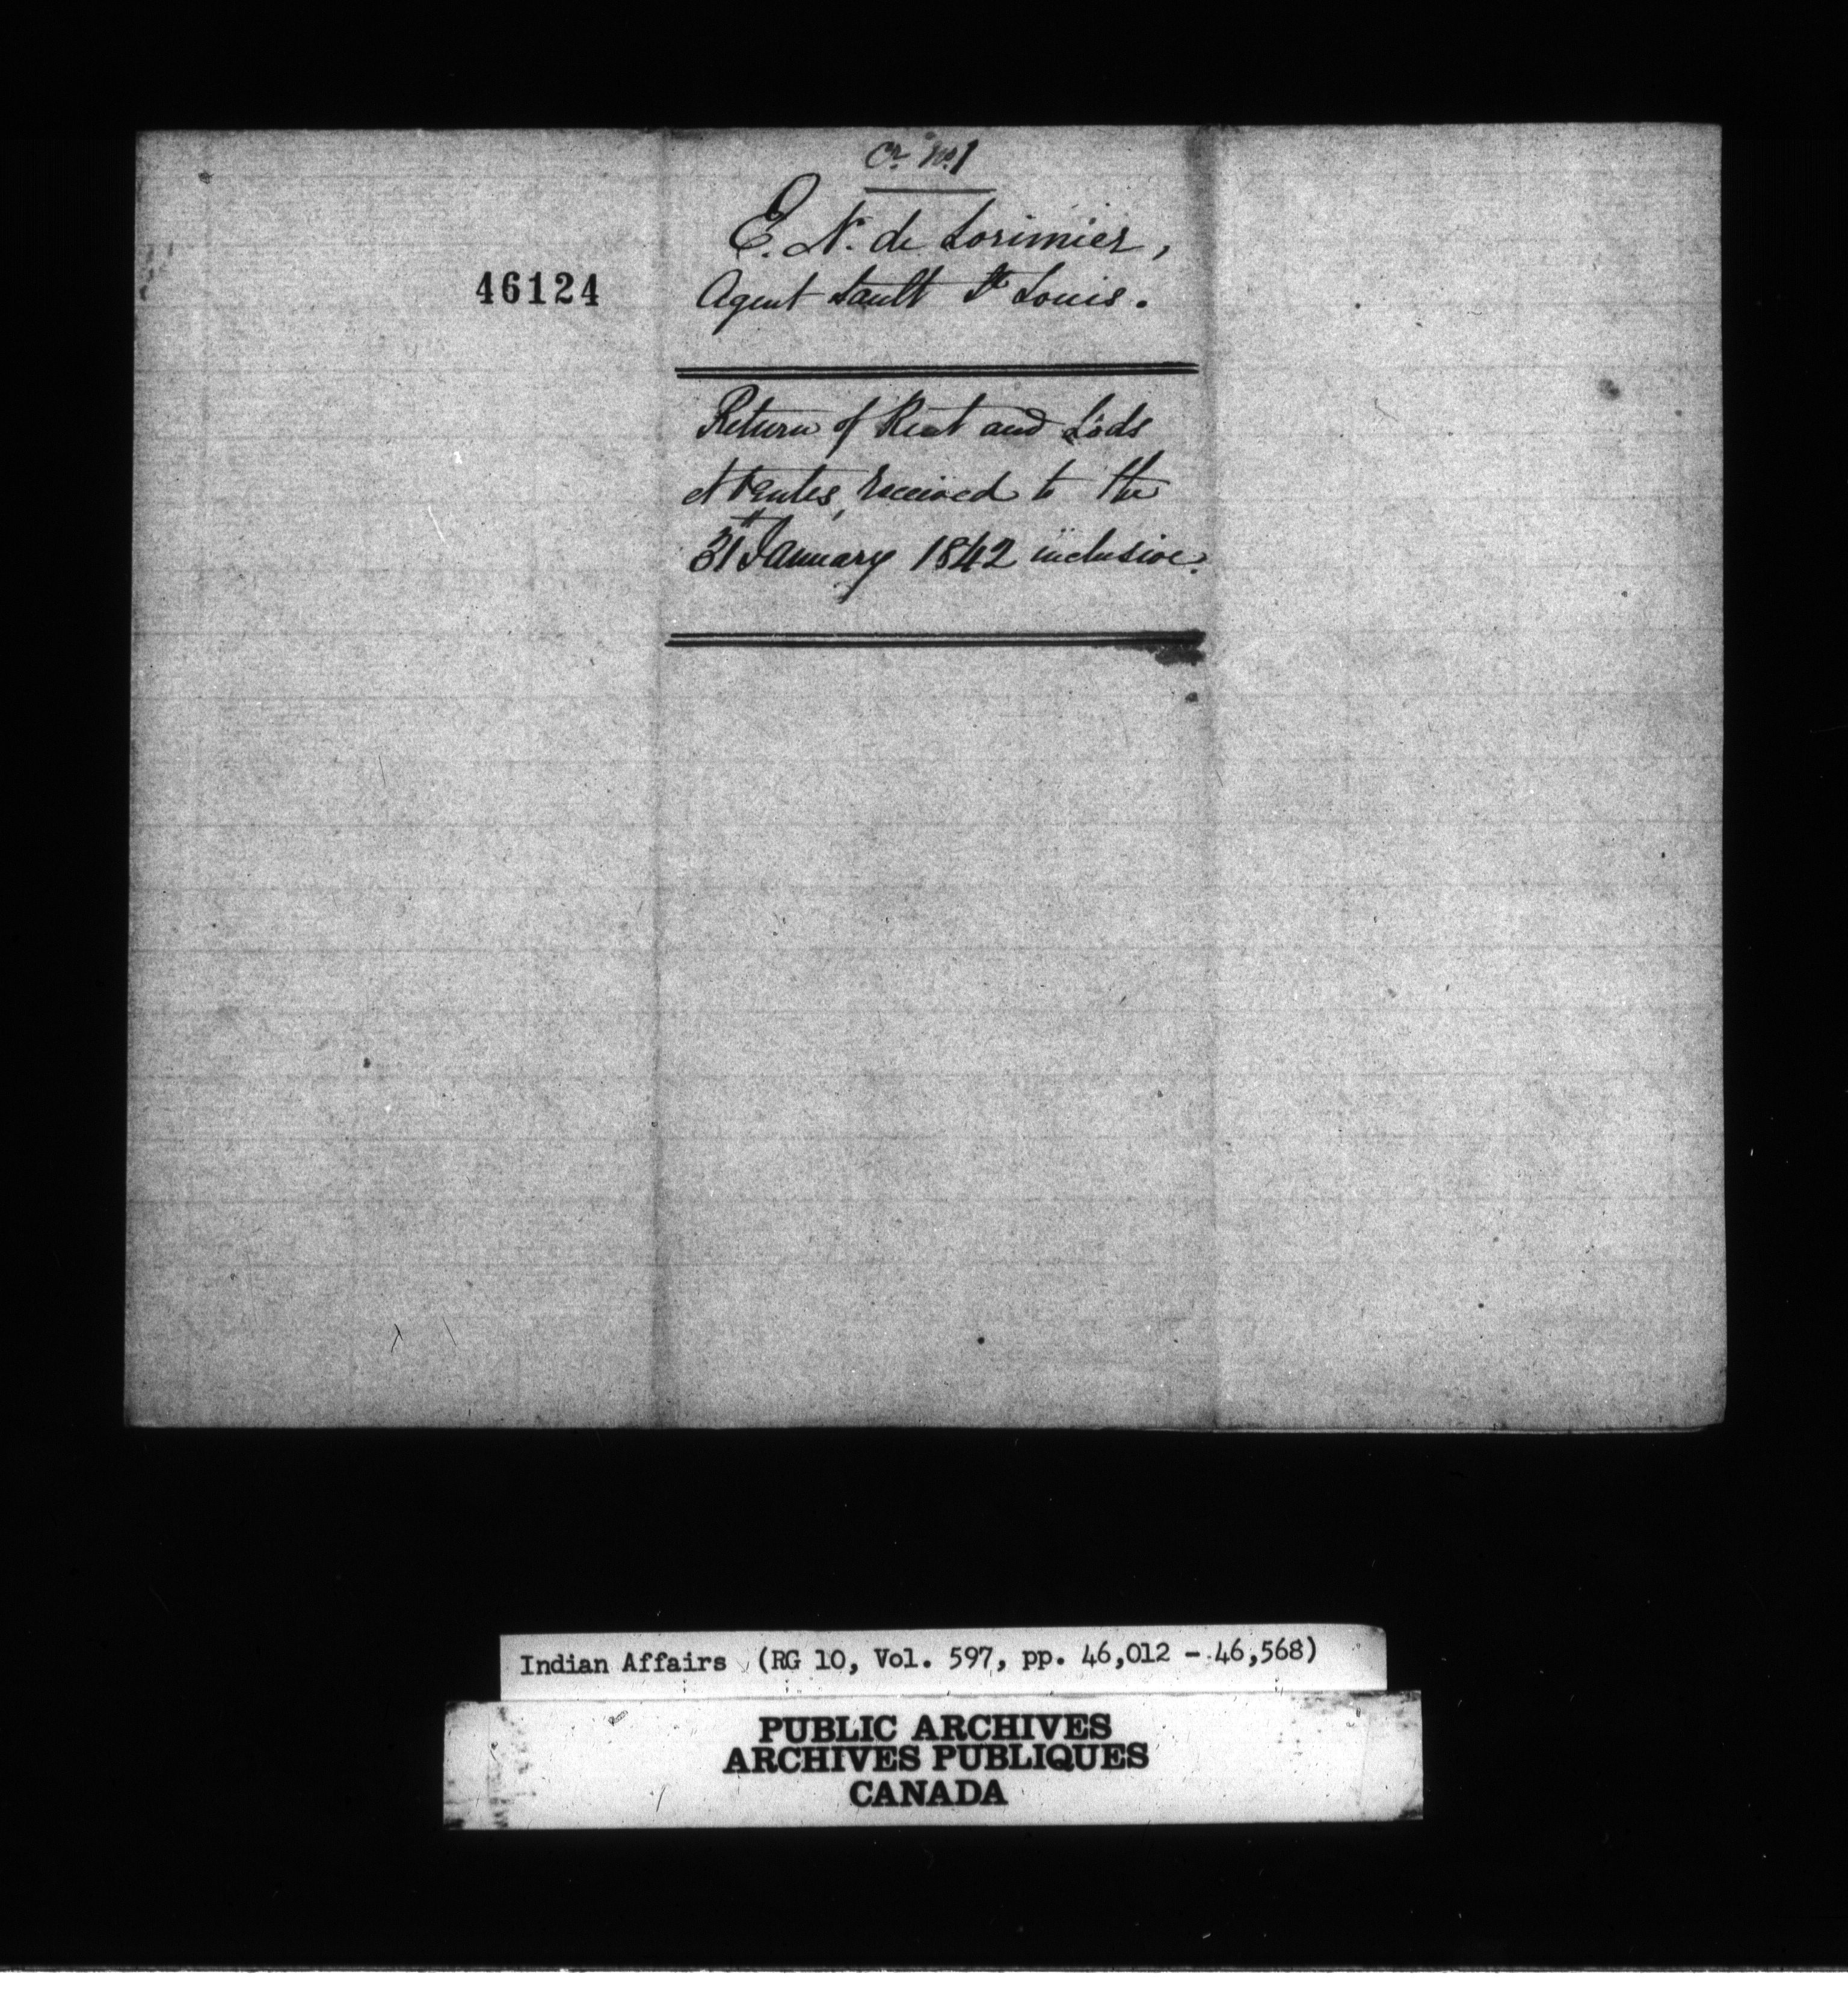 Cr. No. 1
E. N. de Lorimier,
Agent Sault St. Louis.
46124
Return of Rent and Lods
et Ventes, received to the
31st January 1842 inclusive.
Indian Affairs (RG 10, Vol. 597, pp. 46,012 - 46,568)
PUBLIC ARCHIVES
ARCHIVES PUBLIQUES
CANADA